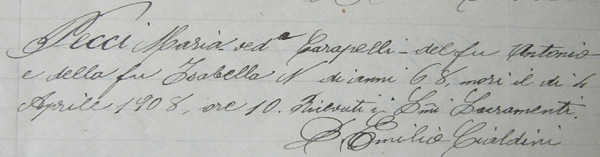 Pecci Maria ved.ª Carapelli – del fu Antonio
e della fu Isabella N di anni 68, morì il dì 4
Aprile 1908, ore 10. Ricevuti i SSmi Sacramenti.
D. Emilio Cialdini